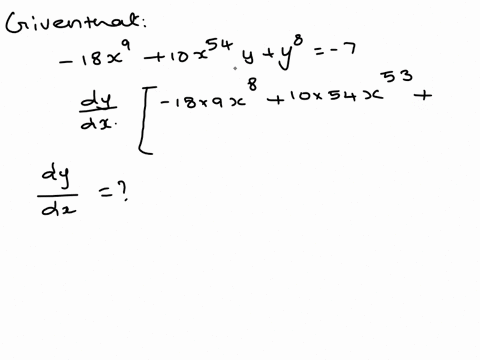 Given that:
-18x⁹ + 10x⁵⁴ y + y⁸ = -7
dy/dx [ -18×9x⁸ + 10×54x⁵³ +
dy/dx = ?